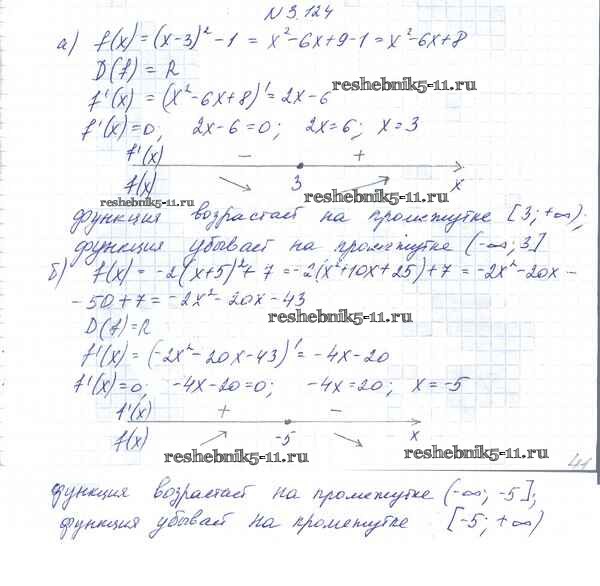 N 3.124
а) f(x) = (x-3)² - 1 = x² - 6x + 9 - 1 = x² - 6x + 8
D(f) = R
reshebnik5-11.ru
f'(x) = (x² - 6x + 8)' = 2x - 6
f'(x) = 0; 2x - 6 = 0; 2x = 6; x = 3
f'(x) - +
f(x) 3 x
reshebnik5-11.ru reshebnik5-11.ru
функция возрастает на промежутке [3; +∞);
функция убывает на промежутке (-∞; 3]
б) f(x) = -2(x+5)² + 7 = -2(x² + 10x + 25) + 7 = -2x² - 20x -
- 50 + 7 = -2x² - 20x - 43
reshebnik5-11.ru
D(f) = R
f'(x) = (-2x² - 20x - 43)' = -4x - 20
f'(x) = 0; -4x - 20 = 0; -4x = 20; x = -5
f'(x) + -
f(x) -5 x
reshebnik5-11.ru reshebnik5-11.ru
41
функция возрастает на промежутке (-∞; -5];
функция убывает на промежутке [-5; +∞)